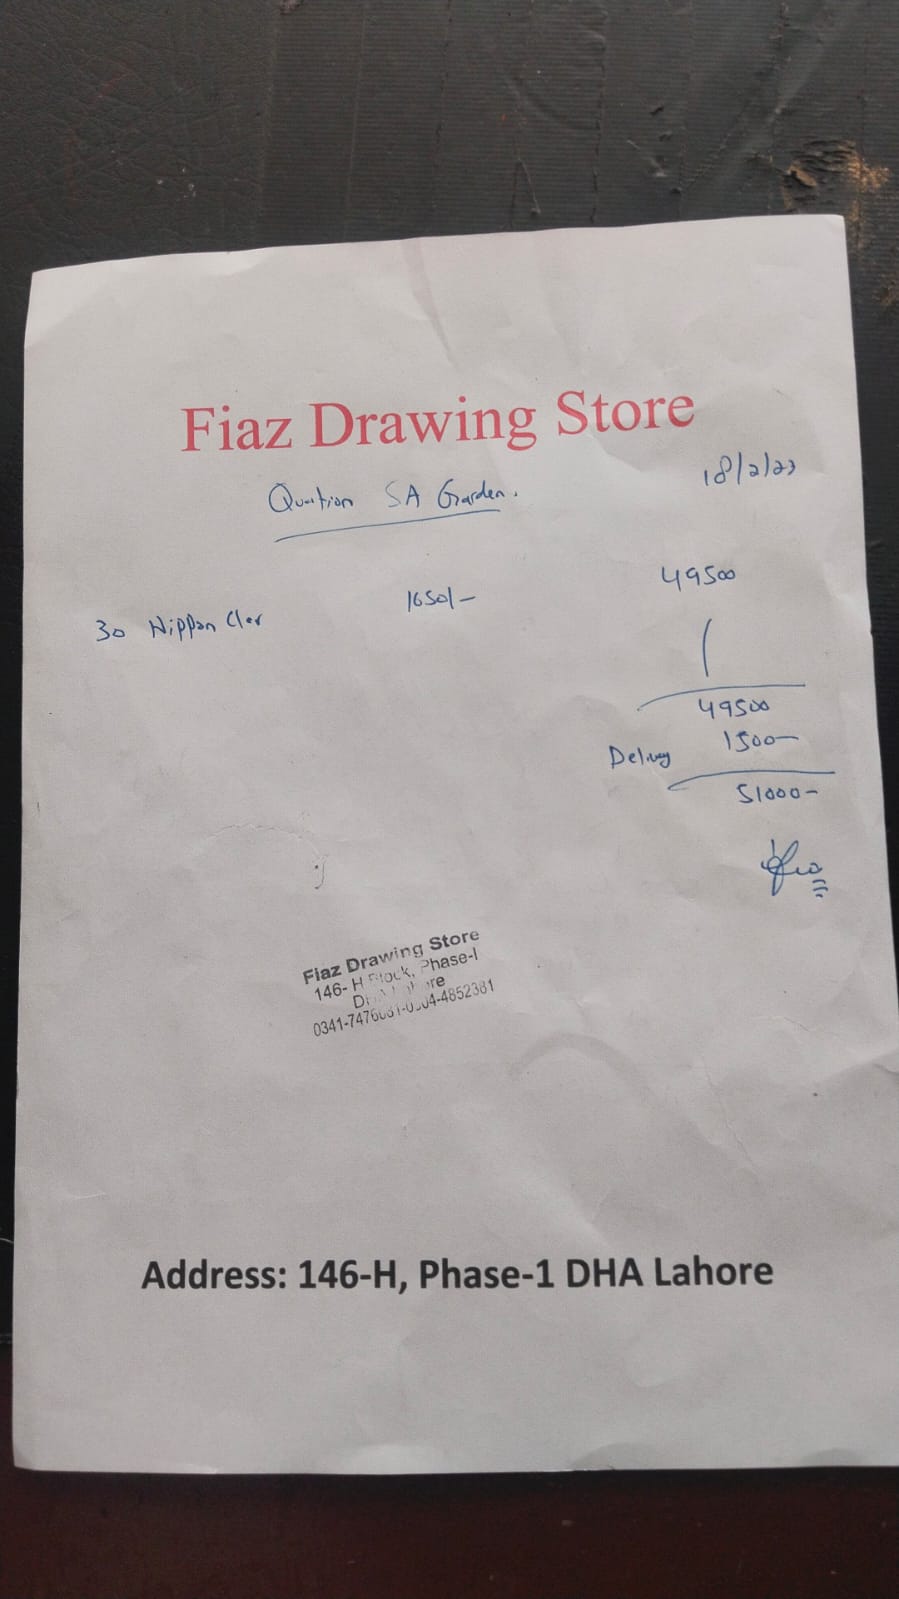 Fiaz Drawing Store
18/2/23
Quotion SA Garden.
30 Nippon Cler 1650/- 49500
49500
Delivey 1500-
51000-
Fiaz Drawing Store
146- H Block, Phase-I
DHA Lahore
0341-7476 -4852381
Address: 146-H, Phase-1 DHA Lahore